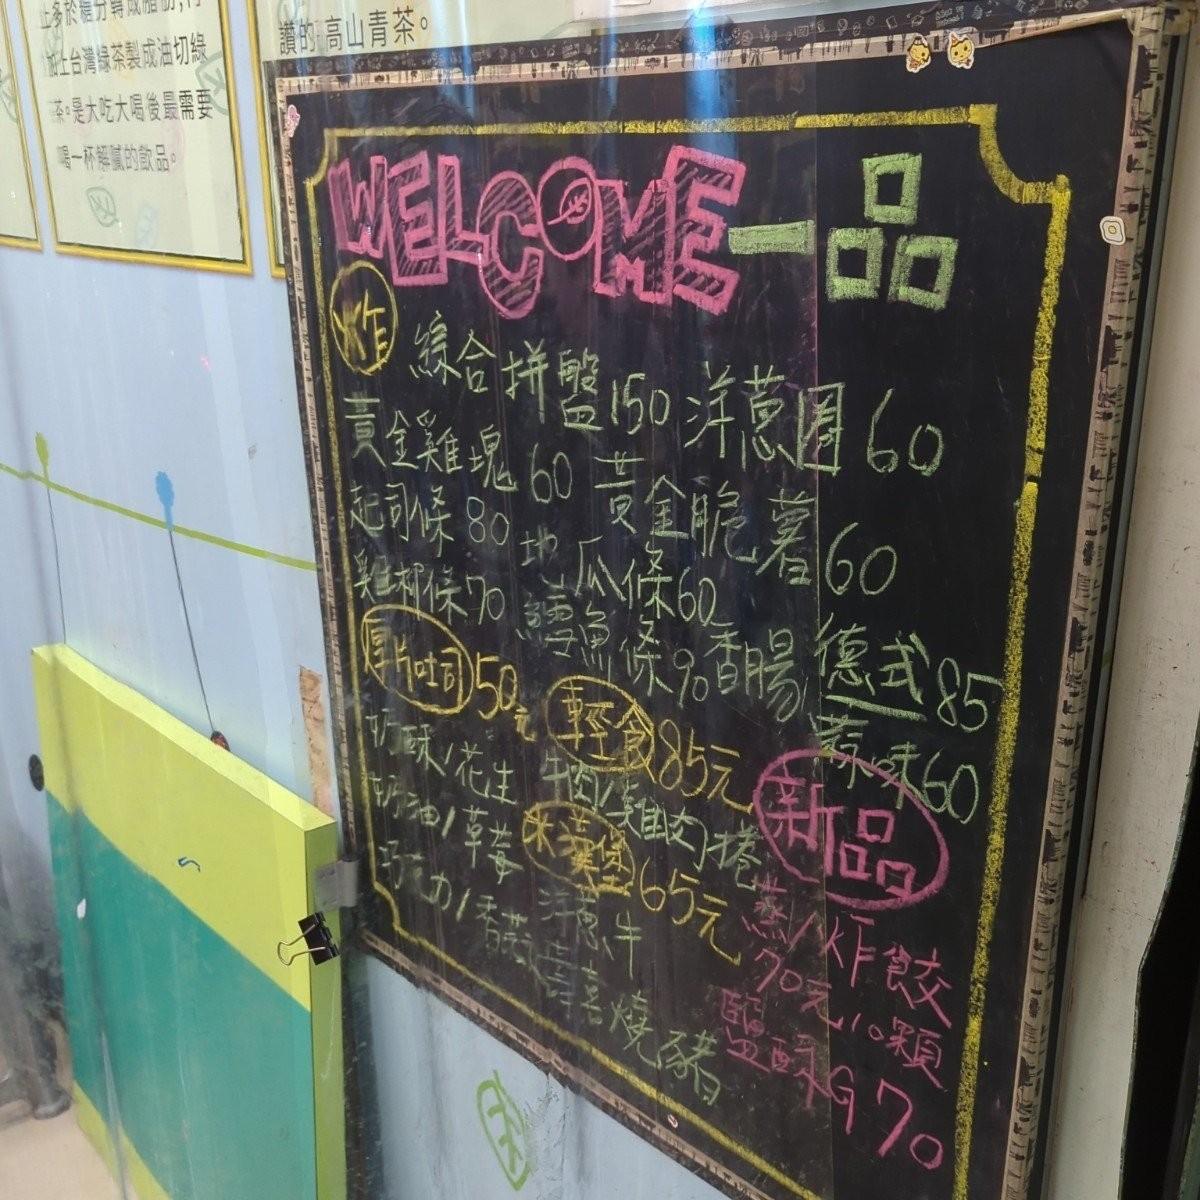 上多於糖分轉成脂肪,再
加上台灣綠茶製成油切綠
茶。是大吃大喝後最需要
喝一杯解膩的飲品。
讚的高山青茶。
WELCOME一品
炸
綜合拼盤150 洋蔥圈60
黃金雞塊60 黃金脆薯60
起司條80 地瓜條60
雞柳條70 鱈魚條90 香腸 德式85
蒜味60
厚片吐司50元
奶酥/花生
奶油/草莓
巧克力/香蒜
輕食85元
牛肉/雞肉捲
米漢堡65元
洋蔥牛
壽喜燒豬
新品
蒸/炸餃
70元10顆
鹽酥G70